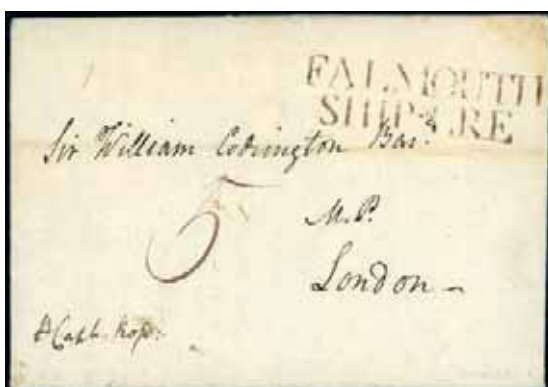 FALMOUTH
SHIP LRE
Sir William Codrington Bar.t
M.P.
London
5